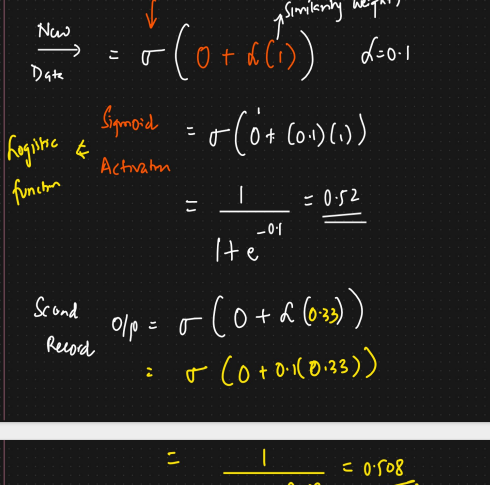 Similarity weight
New Data = σ(0 + α(1)) α=0.1
Logistic function & Sigmoid Activation = σ(0 + (0.1)(1))
= 1 / 1+e^-0.1 = 0.52
Scond Record O/p = σ(0 + α(0.33))
= σ(0 + 0.1(0.33))
= 1 = 0.508